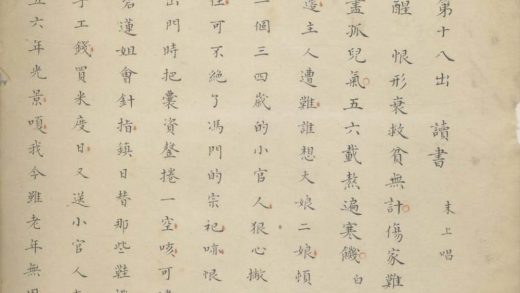 第十八出 讀書 末上唱
醒 恨形衰救貧無計傷家難
盡孤兒氣五六載熬遍寒饑 白
邊主人遭難誰想大娘二娘頓
一個三四歲的小官人狠心撇
可不絶了馮門的宗祀唷恨
出門時把囊資整捲一空咳可
碧蓮姐會針指鎮日替那些鞋
手工錢買米度日又送小官人
五六年光景嗄我今雖老年無